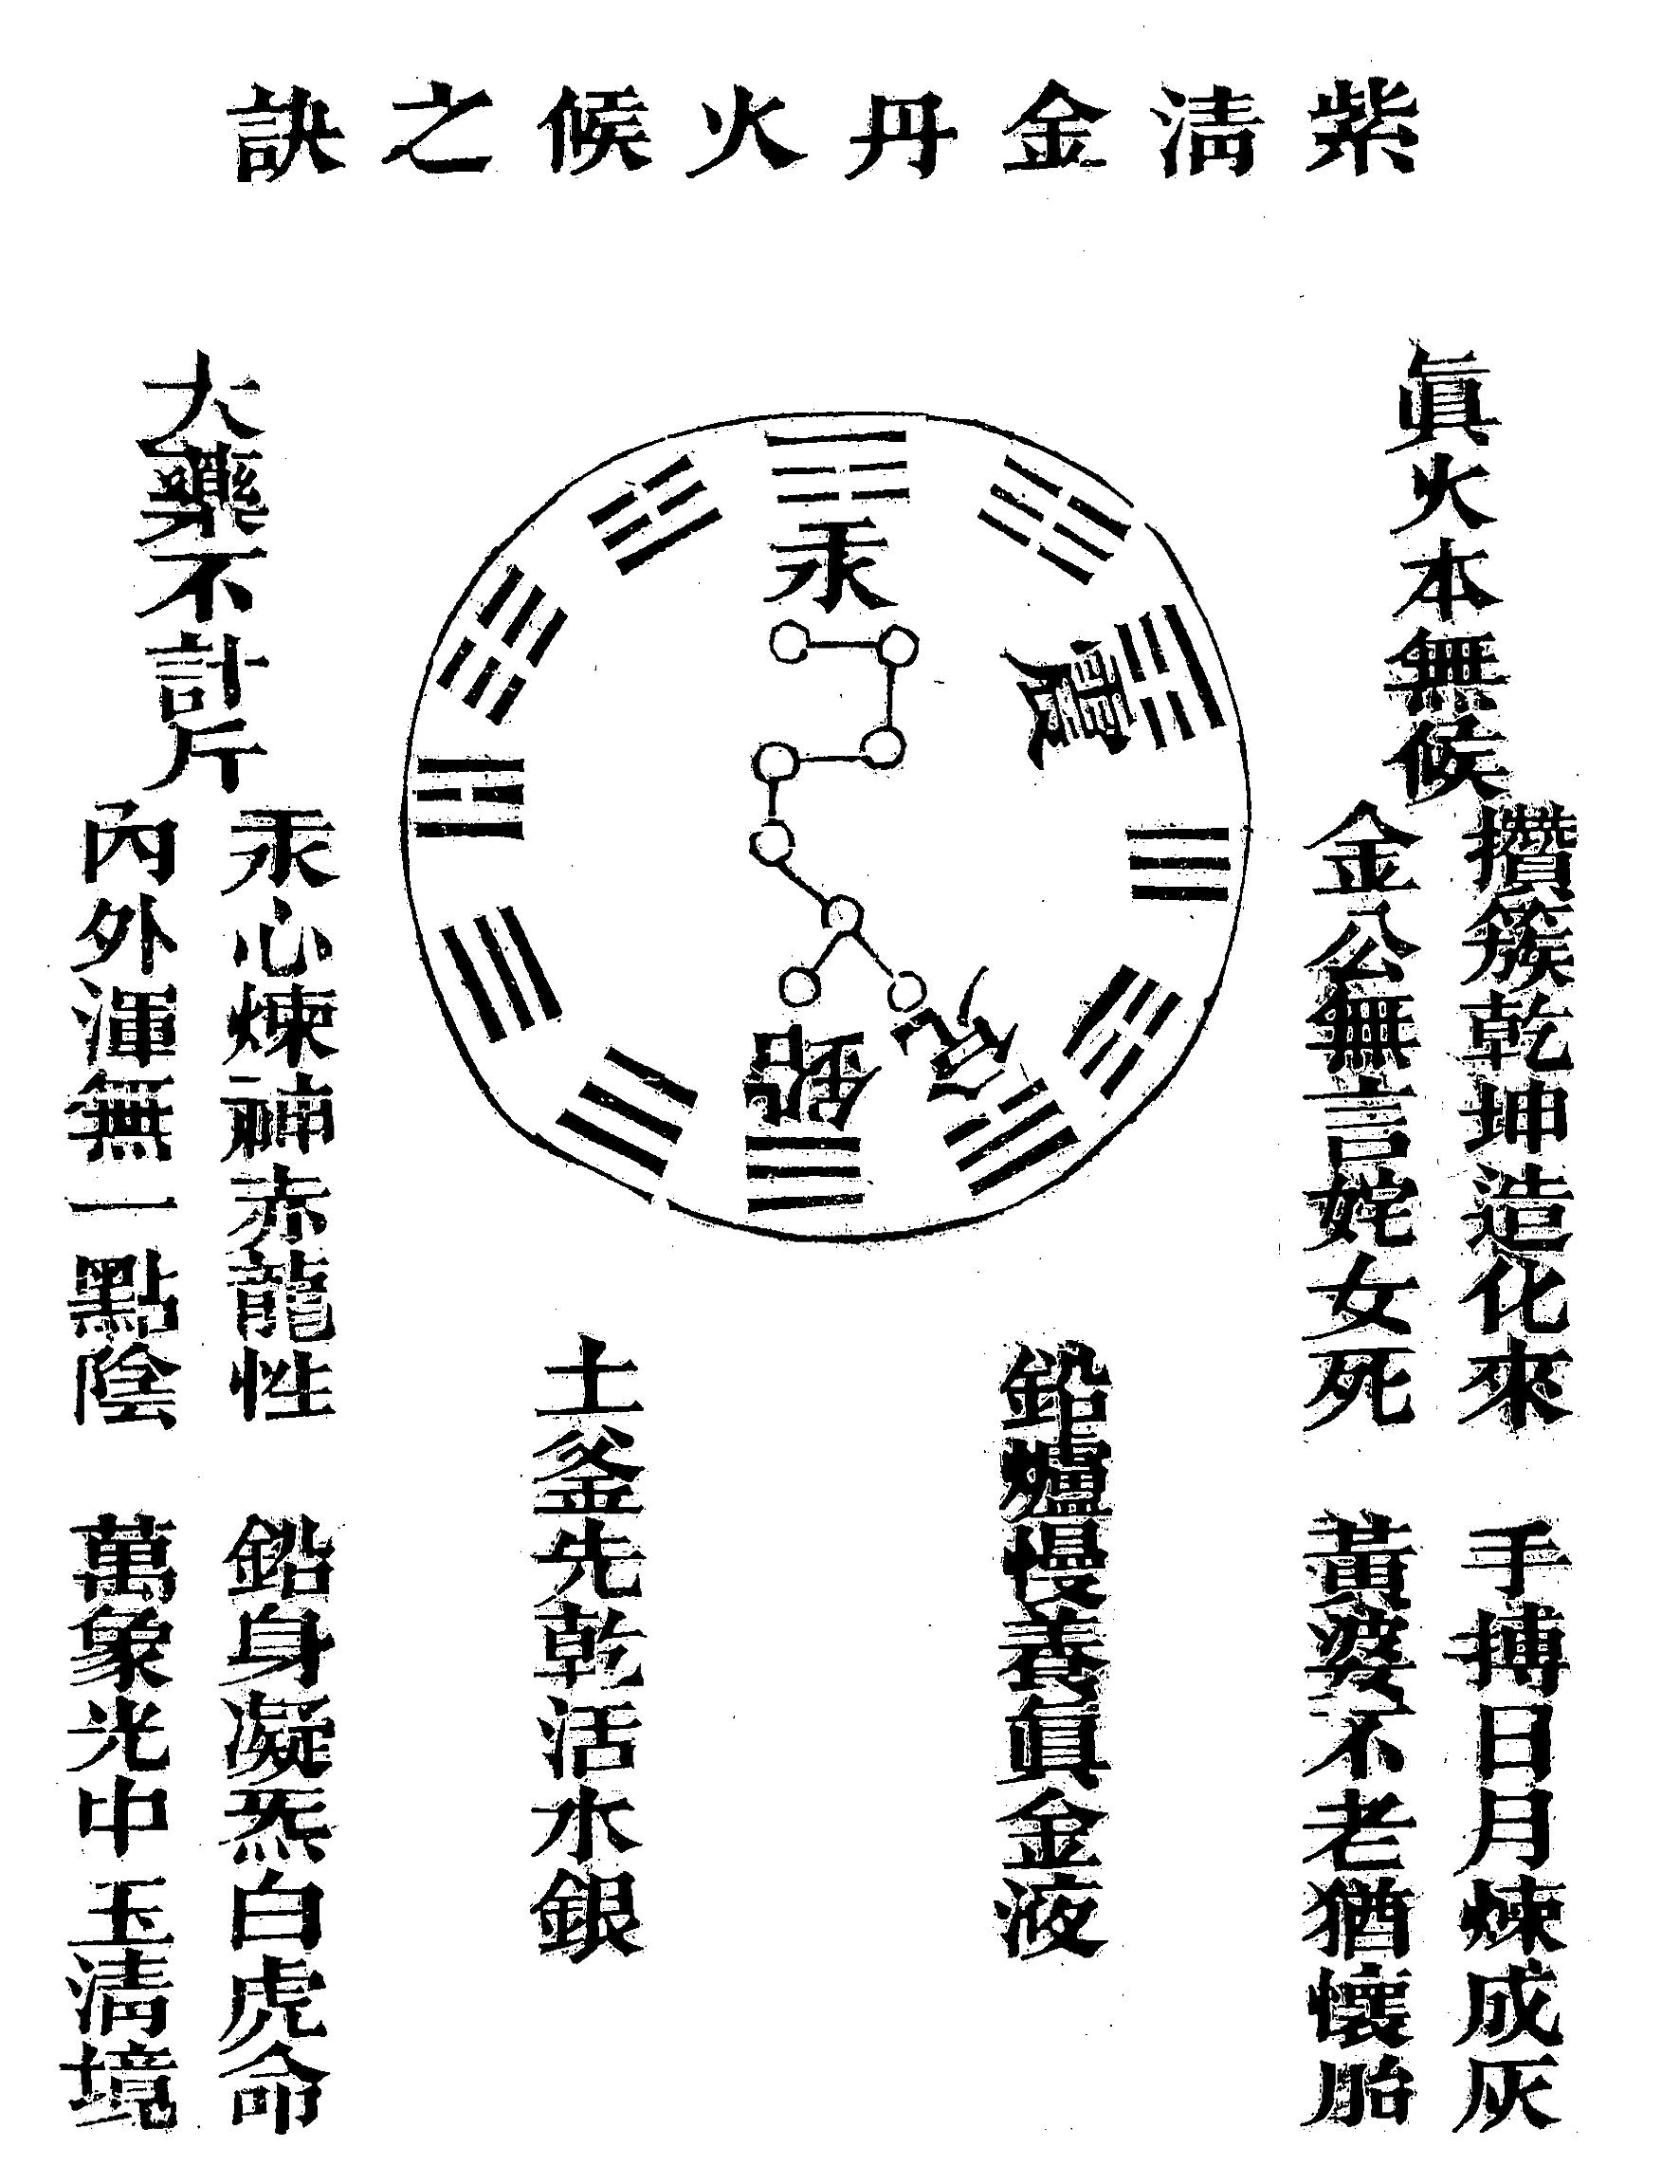 紫清金丹火候之訣
眞火本無候
大藥不計斤
攢簇乾坤造化來
手搏日月煉成灰
金公無言姹女死
黃婆不老猶懷胎
汞
鉛
鉛爐慢養眞金液
土釜先乾活水銀
汞心煉神赤龍性
鉛身凝炁白虎命
內外渾無一點陰
萬象光中玉淸境